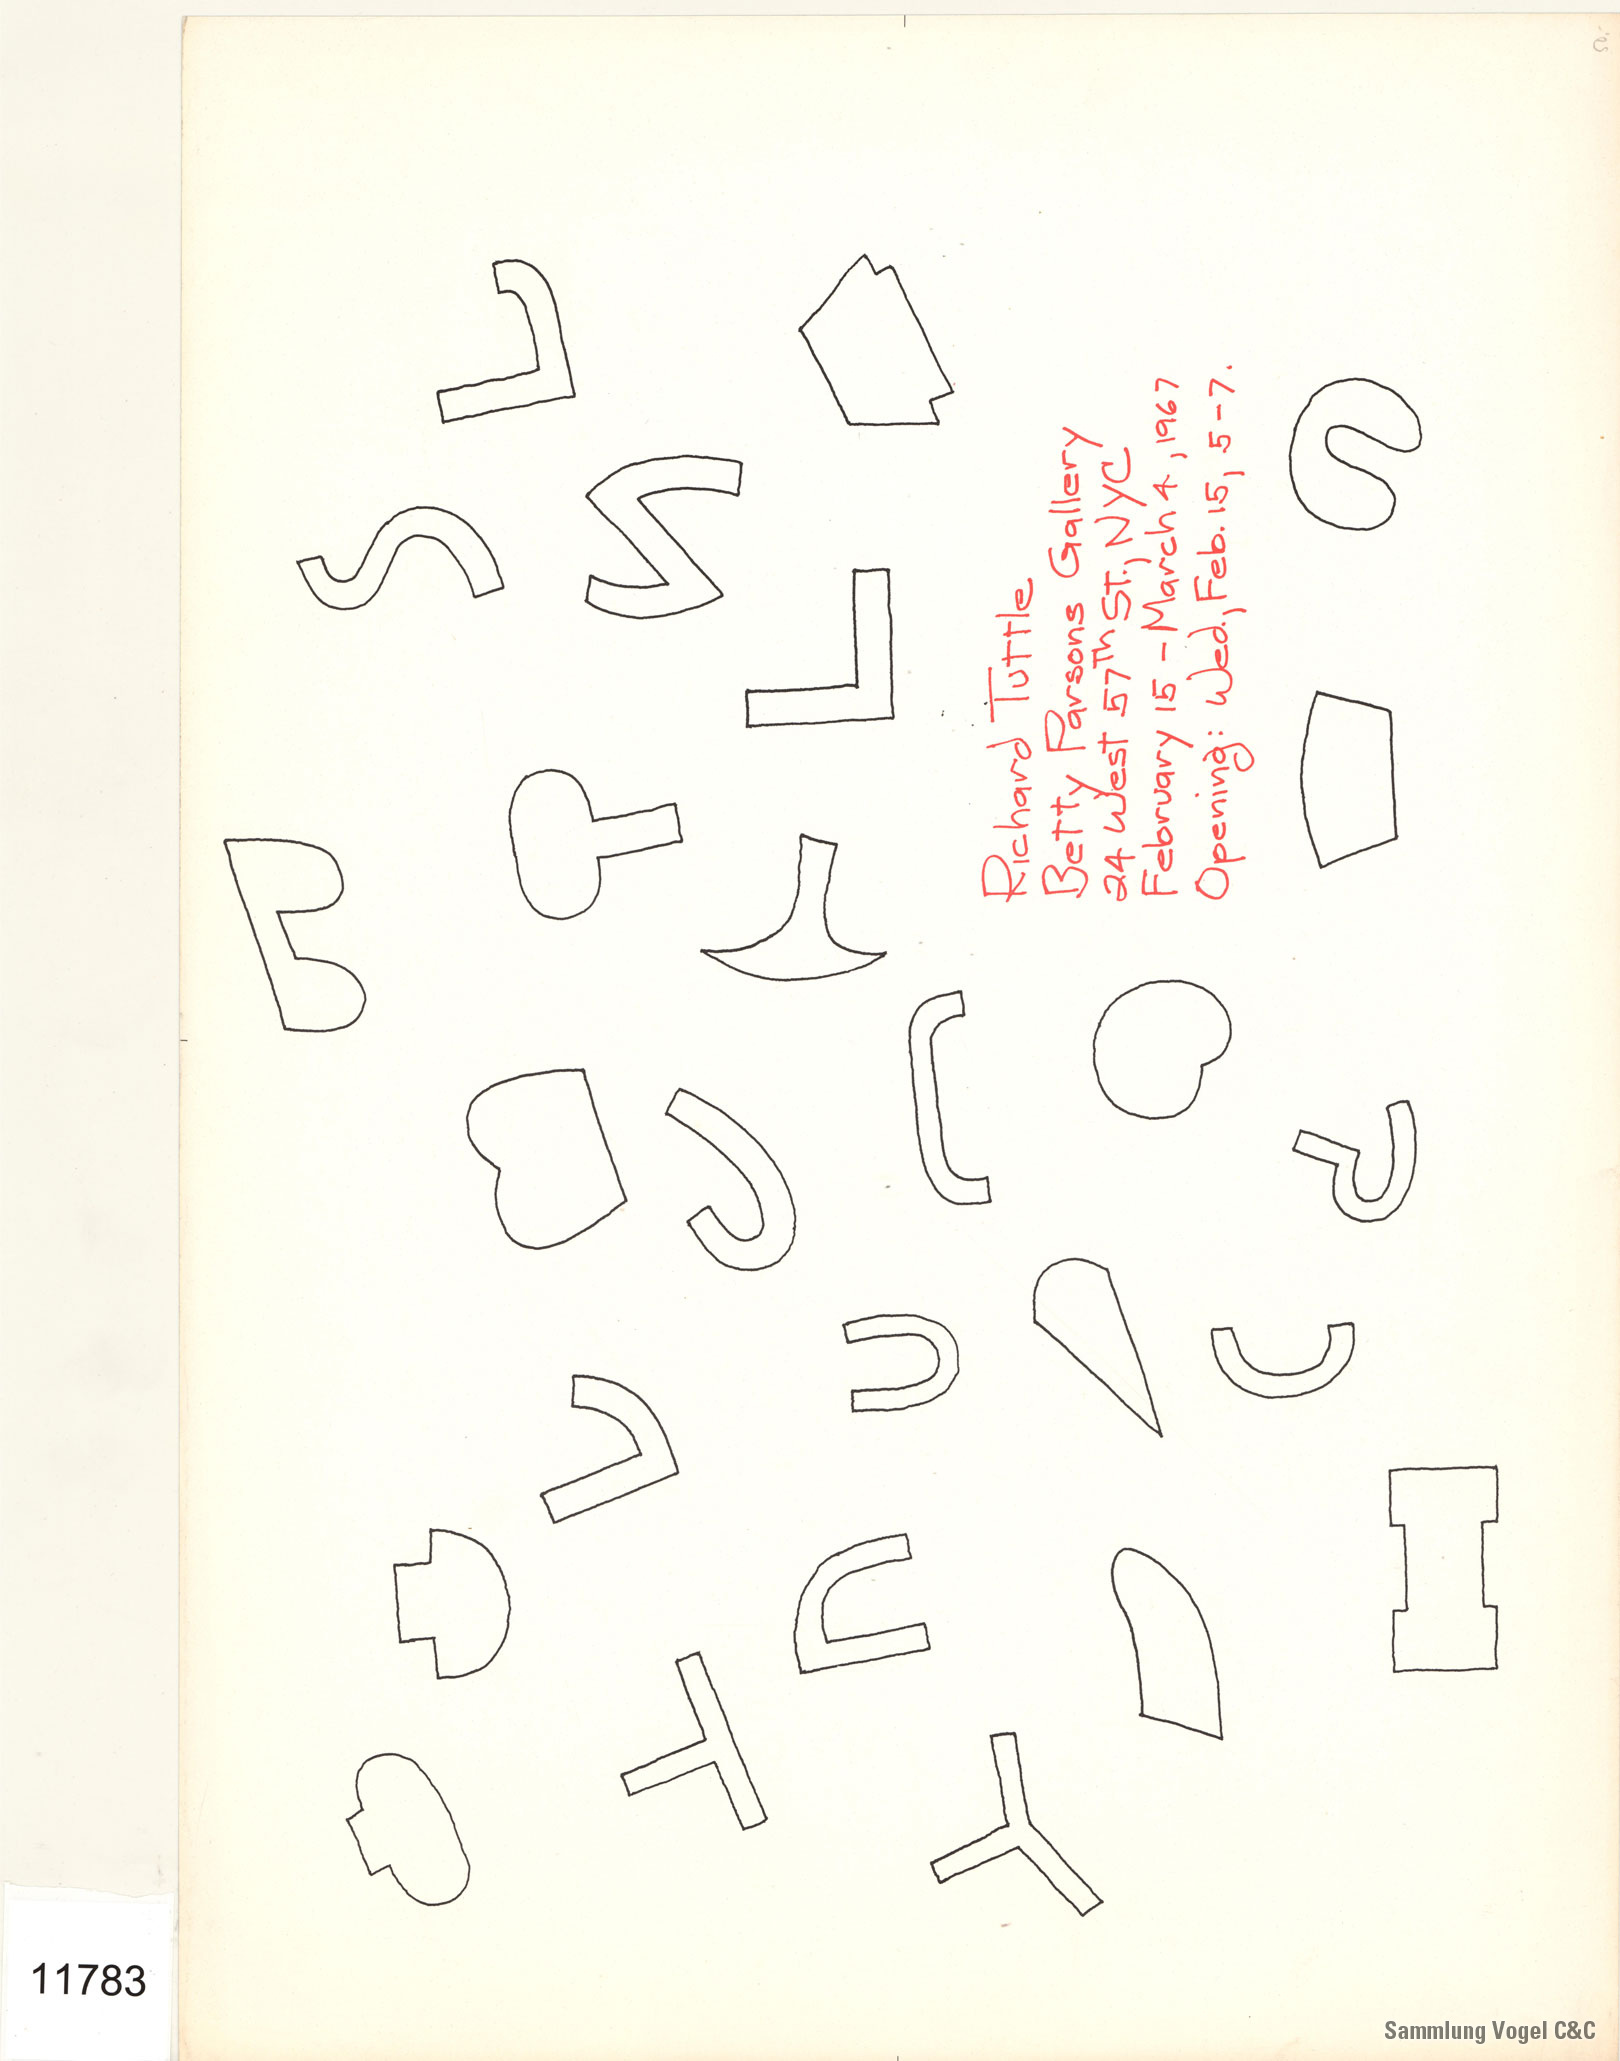 Richard Tuttle
Betty Parsons Gallery
24 West 57Th St., NYC
February 15 - March 4, 1967
Opening: Wed., Feb. 15, 5-7.
11783
Sammlung Vogel C&C